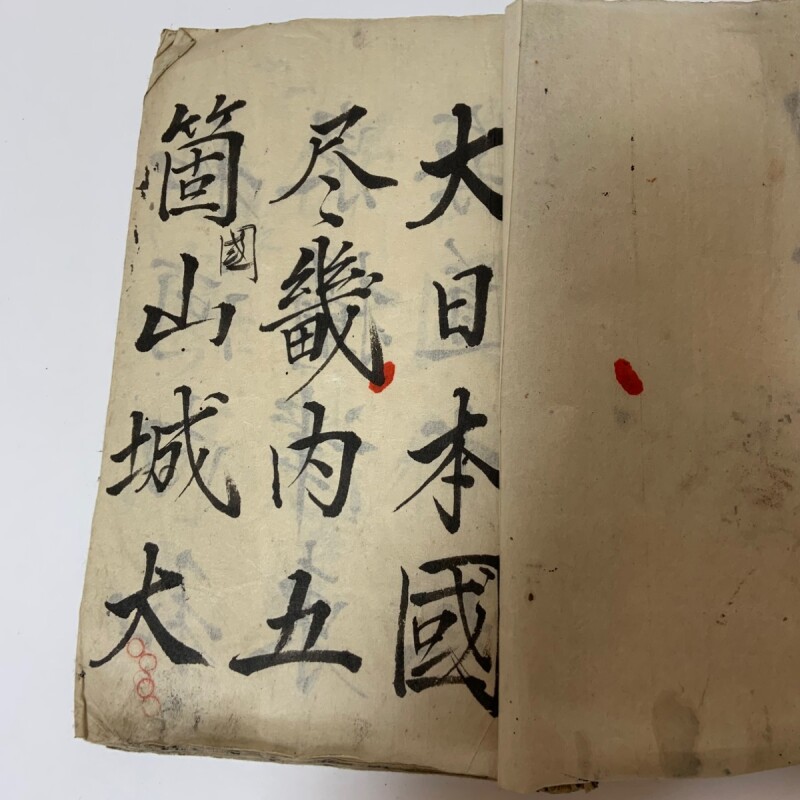 大日本國
尽畿内五
箇國山城大